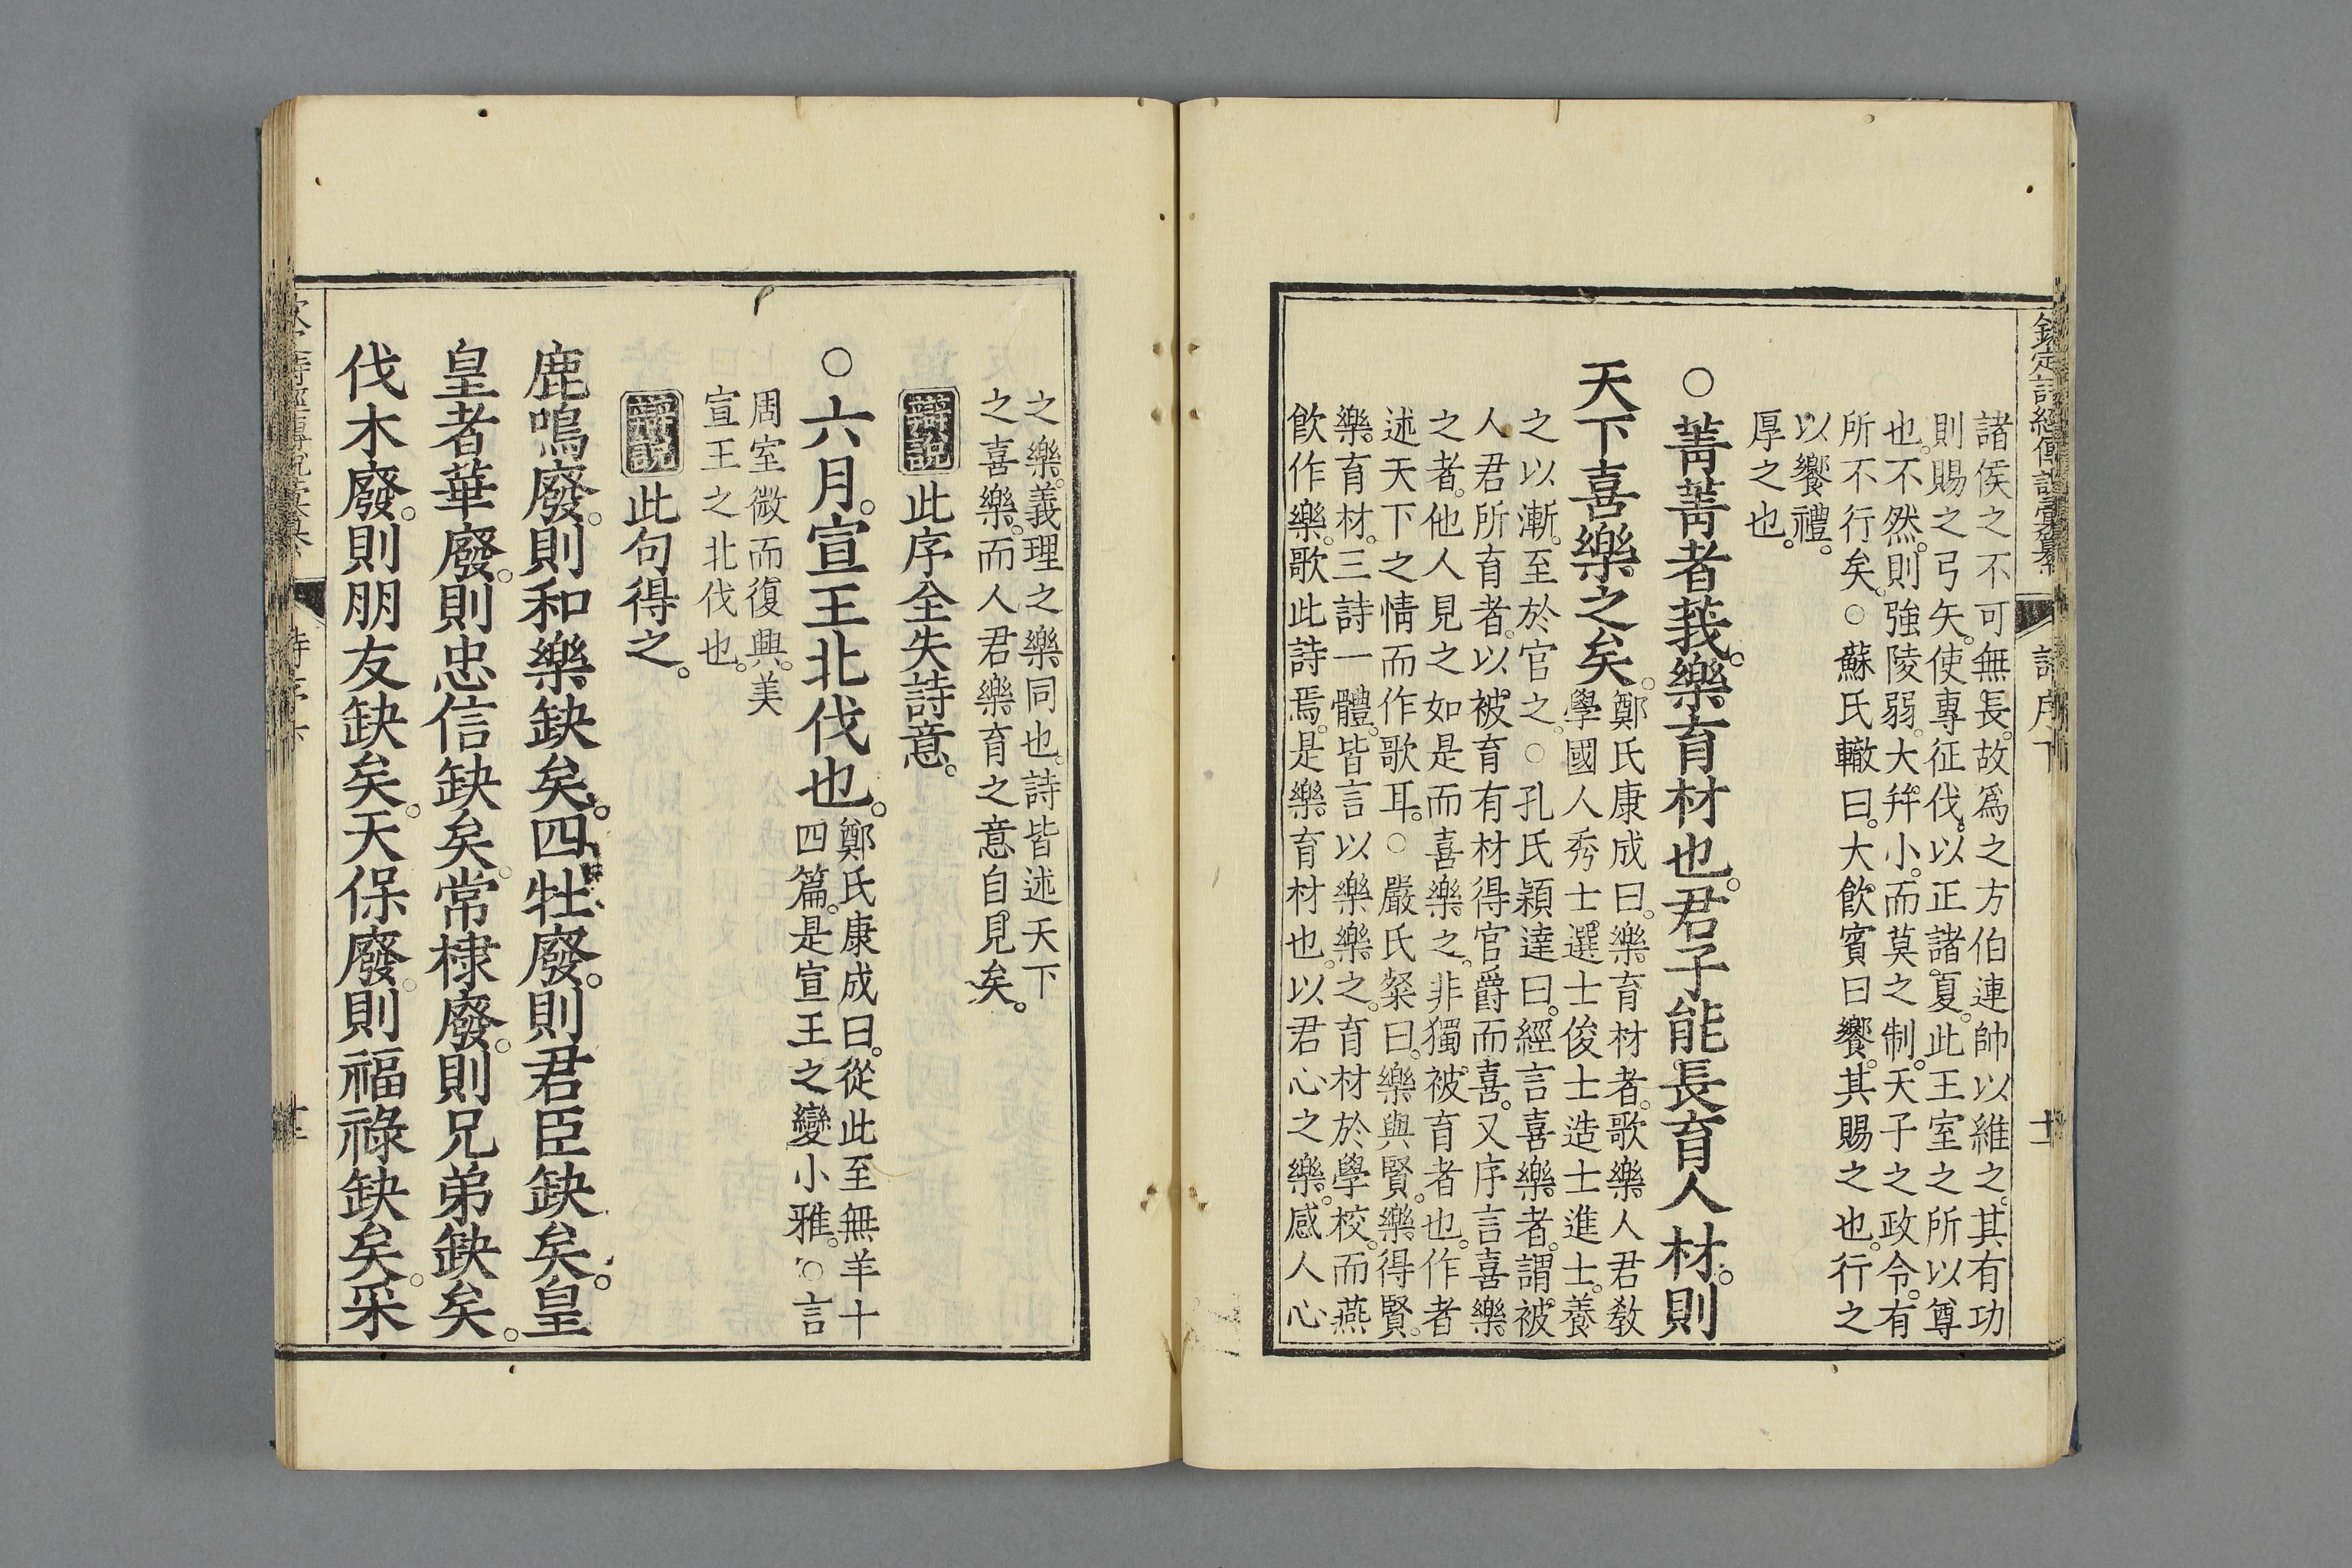 欽定詩經傳說彙纂
詩序下
諸侯之不可無長。故爲之方伯連帥以維之。其有功
則賜之弓矢。使專征伐。以正諸夏。此王室之所以尊
也。不然。則強陵弱。大幷小。而莫之制。天子之政令。有
所不行矣。○蘇氏轍曰。大飮賓曰饗。其賜之也。行之
以饗禮。
厚之也。
○菁菁者莪。樂育材也。君子能長育人材。則
天下喜樂之矣。
鄭氏康成曰。樂育材者。歌樂人君敎
學國人秀士。選士俊士造士進士。養
之以漸。至於官之。○孔氏穎達曰。經言喜樂者。謂被
人君所育者。以被育有材得官爵而喜。又序言喜樂
之者。他人見之如是而喜樂之。非獨被育者也。作者
述天下之情而作歌耳。○嚴氏粲曰。樂與賢。樂得賢。
樂育材。三詩一體。皆言以樂樂之。育材於學校。而燕
飮作樂。歌此詩焉。是樂育材也。以君心之樂。感人心
之樂。義理之樂同也。詩皆述天下
之喜樂。而人君樂育之意自見矣。
辯說此序全失詩意。
○六月。宣王北伐也。
鄭氏康成曰。從此至無羊十
四篇。是宣王之變小雅。○言
周室微而復興。美
宣王之北伐也。
辯說此句得之。
鹿鳴廢。則和樂缺矣。四牡廢。則君臣缺矣。皇
皇者華廢。則忠信缺矣。常棣廢。則兄弟缺矣。
伐木廢。則朋友缺矣。天保廢。則福祿缺矣。采